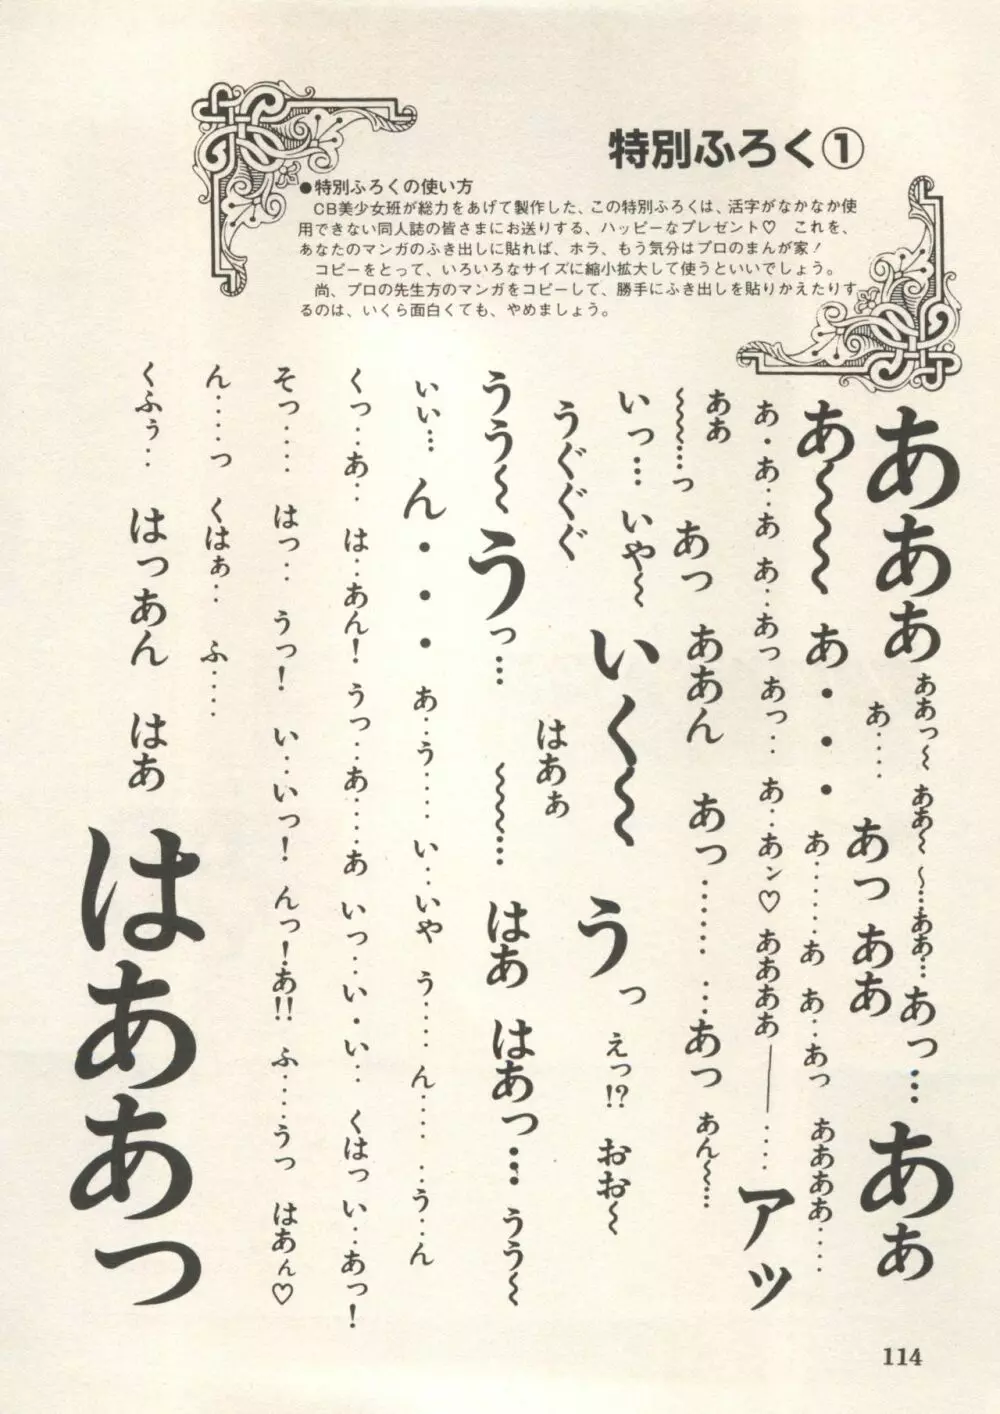 特別ふろく①
●特別ふろくの使い方
CB美少女班が総力をあげて製作した、この特別ふろくは、活字がなかなか使
用できない同人誌の皆さまにお送りする、ハッピーなプレゼント♡ これを、
あなたのマンガのふき出しに貼れば、ホラ、もう気分はプロのまんが家！
コピーをとって、いろいろなサイズに縮小拡大して使うといいでしょう。
尚、プロの先生方のマンガをコピーして、勝手にふき出しを貼りかえたりす
るのは、いくら面白くても、やめましょう。
あああ
ああっ〜 ああ〜 〜……ああ… あっ… あぁ
あ…‥ あっ ああ
あ〜〜〜 あ・・・ あ…… あ あ‥あっ ああああ……
あ・あ‥あ あ‥あっ あっ‥ あ‥あン♡ ああああ―――…‥ アッ
ああ
〜〜〜…っ あっ ああん あっ…… …あっ あん〜…
いっ… いや〜 いく〜〜 うっ えっ!? おお〜
うぐぐぐ はあぁ
うう〜 うっ… 〜〜〜… はあ はあっ… うう〜
いい… ん・・・ あ‥う…‥ い‥いや う…‥ ん…‥ ‥う‥ん
くっ…あ‥ は‥あん！ うっ…あ…‥あ いっ…い・い‥ くはっ い‥あっ！
そっ…‥ はっ‥ うっ！ い‥いっ！ んっ！あ!! ふ…‥うっ はあん♡
ん…‥っ くはぁ‥ ふ…‥
くふぅ‥ はっあん はあ はああっ
114